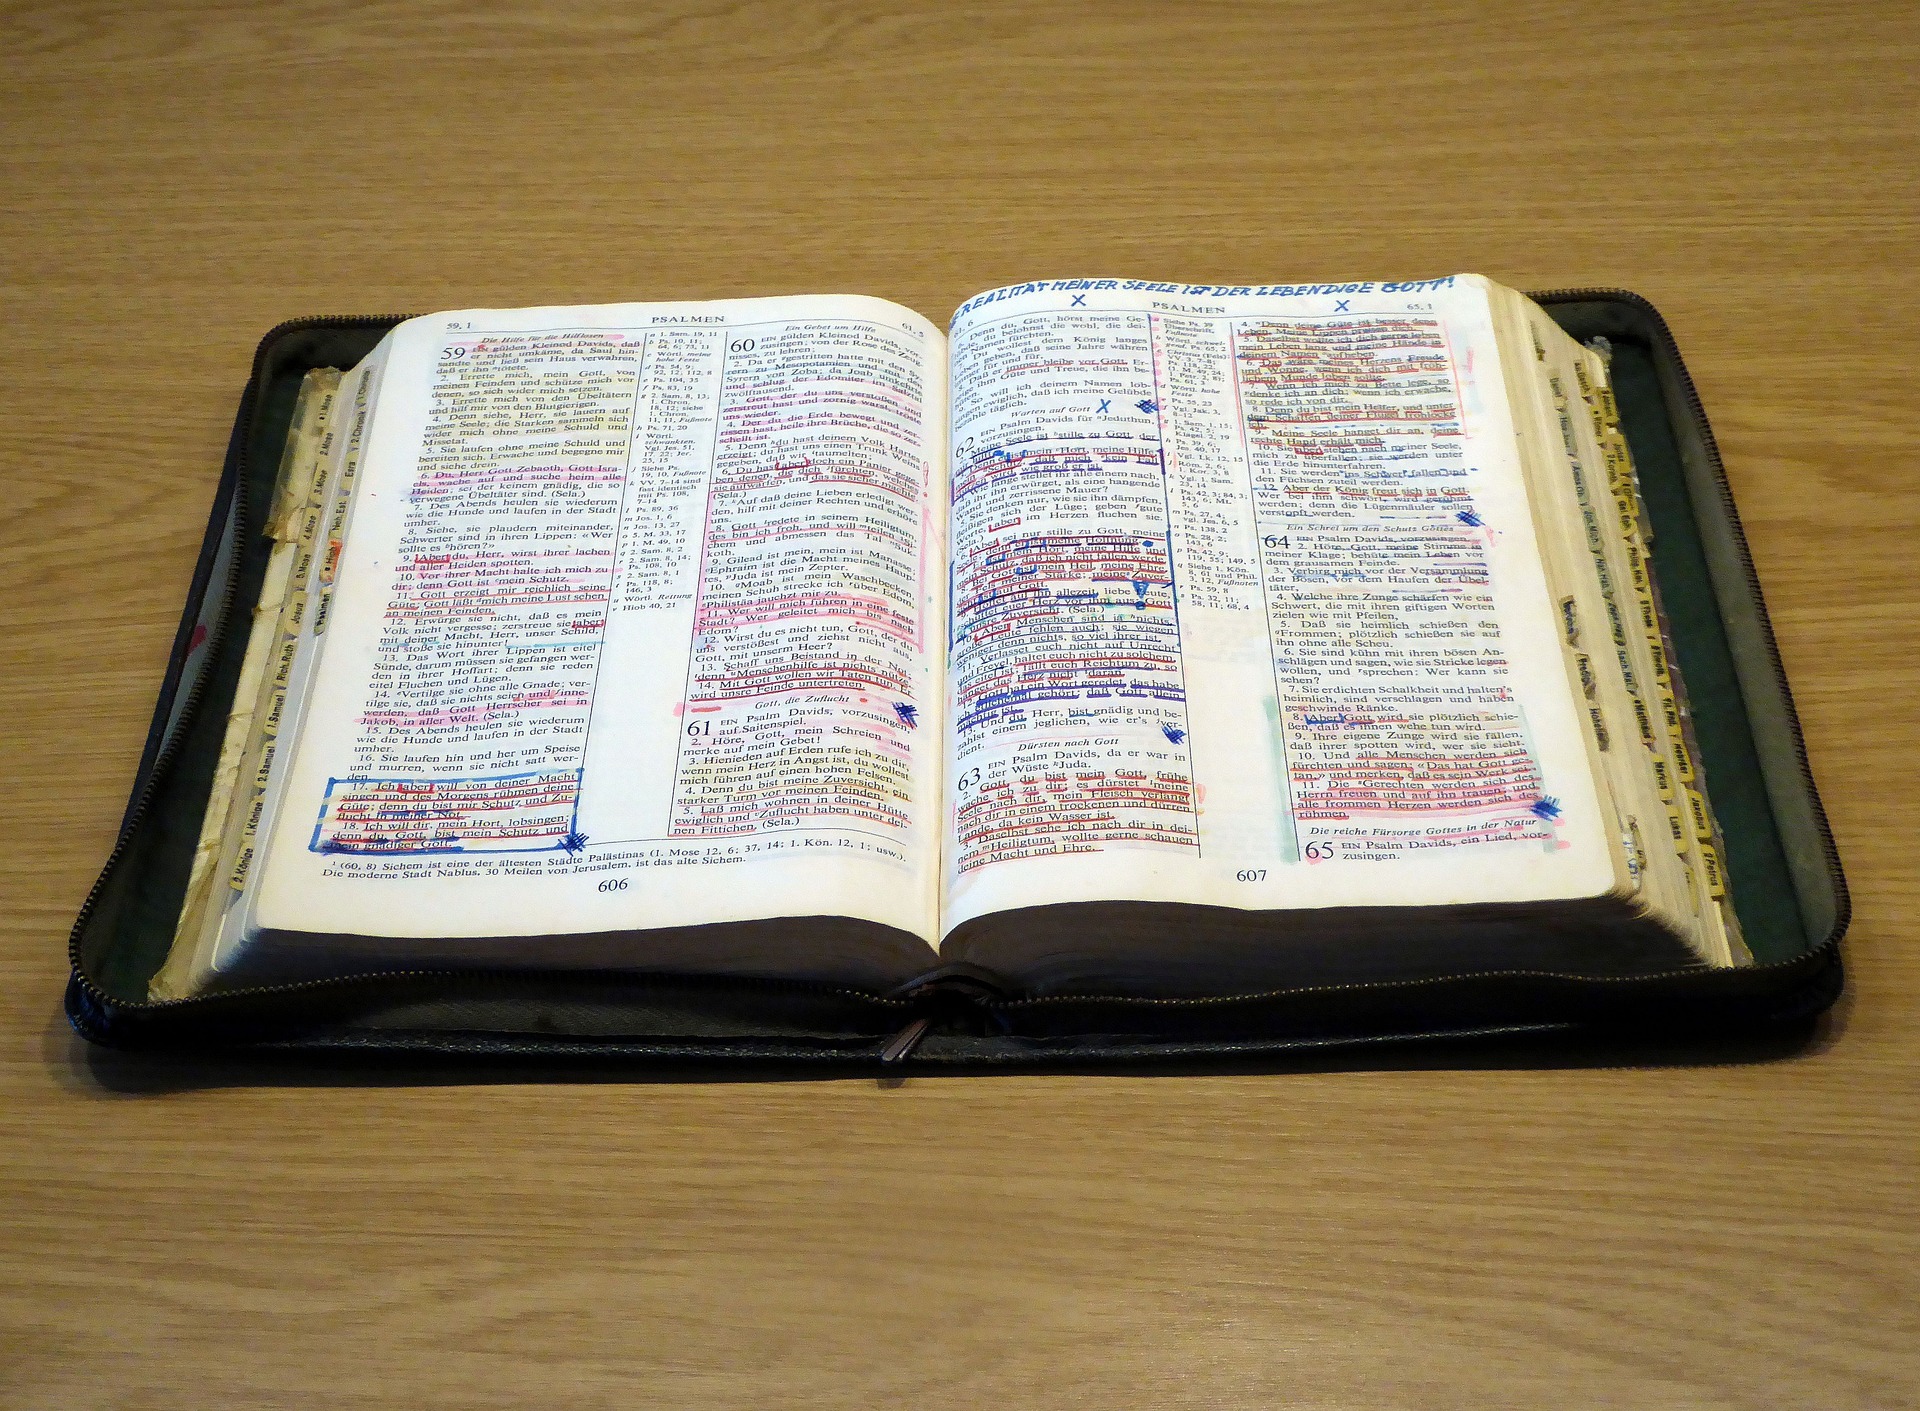 59, 1
PSALMEN
61, 5
Die Hilfe für die Hilflosen
59 EIN gülden Kleinod Davids, daß
er nicht umkäme, da Saul hin-
sandte und ließ sein Haus verwahren,
daß er ihn tötete.
2. Errette mich, mein Gott, von
meinen Feinden und schütze mich vor
denen, so sich wider mich setzen.
3. Errette mich von den Übeltätern
und hilf mir von den Blutgierigen.
4. Denn siehe, Herr, sie lauern auf
meine Seele; die Starken sammeln sich
wider mich ohne meine Schuld und
Missetat.
5. Sie laufen ohne meine Schuld und
bereiten sich. Erwache und begegne mir
und siehe drein.
6. Du, Herr, Gott Zebaoth, Gott Isra-
els, wache auf und suche heim alle
Heiden; sei der keinem gnädig, die so
verwegene Übeltäter sind. (Sela.)
7. Des Abends heulen sie wiederum
wie die Hunde und laufen in der Stadt
umher.
8. Siehe, sie plaudern miteinander,
Schwerter sind in ihren Lippen: «Wer
sollte es hören?»
9. Aber du, Herr, wirst ihrer lachen
und aller Heiden spotten.
10. Vor ihrer Macht halte ich mich zu
dir; denn Gott ist mein Schutz.
11. Gott erzeigt mir reichlich seine
Güte; Gott läßt mich meine Lust sehen
an meinen Feinden.
12. Erwürge sie nicht, daß es mein
Volk nicht vergesse; zerstreue sie aber
mit deiner Macht, Herr, unser Schild,
und stoße sie hinunter!
13. Das Wort ihrer Lippen ist eitel
Sünde, darum müssen sie gefangen wer-
den in ihrer Hoffart; denn sie reden
eitel Fluchen und Lügen.
14. Vertilge sie ohne alle Gnade; ver-
tilge sie, daß sie nichts seien und inne-
werden, daß Gott Herrscher sei in
Jakob, in aller Welt. (Sela.)
15. Des Abends heulen sie wiederum
wie die Hunde und laufen in der Stadt
umher.
16. Sie laufen hin und her um Speise
und murren, wenn sie nicht satt wer-
den.
17. Ich aber will von deiner Macht
singen und des Morgens rühmen deine
Güte; denn du bist mir Schutz und Zu-
flucht in meiner Not.
18. Ich will dir, mein Hort, lobsingen;
denn du, Gott, bist mein Schutz und
mein gnädiger Gott.
a 1. Sam. 19, 11
b Ps. 10, 11;
64, 6; 73, 11
c Wörtl. meine
hohe Feste
d Ps. 54, 9;
92, 12, 112, 8
e Ps. 104, 35
f Ps. 83, 19
g 2. Sam. 8, 13;
1. Chron.
18, 12; siehe
1. Chron.
11, 11, Fußnote
h Ps. 71, 20
i Wörtl.
schwankten.
Vgl. Jes. 51,
17. 22; Jer.
25, 15
j Siehe Ps.
19, 10, Fußnote
k VV. 7-14 sind
fast identisch
mit Ps. 108,
7-14
l Ps. 89, 36
m Jos. 1, 6
n Jos. 13, 27
o 5. M. 33, 17
p 1. M. 49, 10
q 2. Sam. 8, 2
r 2. Sam. 8, 14;
Ps. 108, 10
s 2. Sam. 8, 1
t Ps. 118, 8;
146, 3
u Wörtl. Rettung
v Hiob 40, 21
Ein Gebet um Hilfe
60 EIN gülden Kleinod Davids, vor-
zusingen; von der Rose des Zeug-
nisses, zu lehren;
2. Da er gestritten hatte mit den Sy-
rern zu Mesopotamien und mit den
Syrern von Zoba; da Joab umkehrte
und schlug der Edomiter im Salztal
zwölftausend.
3. Gott, der du uns verstoßen und
zerstreut hast und zornig warst, tröste
uns wieder.
4. Der du die Erde bewegt und zer-
rissen hast, heile ihre Brüche, die so zer-
schellt ist.
5. Denn du hast deinem Volk Hartes
erzeigt; du hast uns einen Trunk Weins
gegeben, daß wir taumelten;
6. Du hast aber doch ein Panier gege-
ben denen, die dich fürchten, welches
sie aufwarfen, und das sie sicher machte.
(Sela.)
7. Auf daß deine Lieben erledigt wer-
den, hilf mit deiner Rechten und erhöre
uns.
8. Gott redete in seinem Heiligtum,
des bin ich froh, und will teilen Si-
chem und abmessen das Tal Suk-
koth.
9. Gilead ist mein, mein ist Manasse;
Ephraim ist die Macht meines Haup-
tes, Juda ist mein Zepter.
10. Moab ist mein Waschbecken,
meinen Schuh strecke ich über Edom,
Philistäa jauchzt mir zu.
11. Wer will mich führen in eine feste
Stadt? Wer geleitet mich bis nach
Edom?
12. Wirst du es nicht tun, Gott, der du
uns verstößest und ziehst nicht aus,
Gott, mit unserm Heer?
13. Schaff uns Beistand in der Not;
denn Menschenhilfe ist nichts nütze.
14. Mit Gott wollen wir Taten tun. Er
wird unsre Feinde untertreten.
Gott, die Zuflucht
61 EIN Psalm Davids, vorzusingen,
auf Saitenspiel.
2. Höre, Gott, mein Schreien und
merke auf mein Gebet!
3. Hienieden auf Erden rufe ich zu dir,
wenn mein Herz in Angst ist, du wollest
mich führen auf einen hohen Felsen.
4. Denn du bist meine Zuversicht, ein
starker Turm vor meinen Feinden.
5. Laß mich wohnen in deiner Hütte
ewiglich und Zuflucht haben unter dei-
nen Fittichen. (Sela.)
1 (60, 8) Sichem ist eine der ältesten Städte Palästinas (1. Mose 12, 6; 37, 14; 1. Kön. 12, 1; usw.).
Die moderne Stadt Nablus, 30 Meilen von Jerusalem, ist das alte Sichem.
606
REALITÄT MEINER SEELE IST DER LEBENDIGE GOTT!
61, 6
PSALMEN
65, 1
6. Denn du, Gott, hörst meine Ge-
lübde; du belohnst die wohl, die dei-
nen Namen fürchten.
7. Du wollest dem König langes
Leben geben, daß seine Jahre währen
immer für und für.
8. Daß er immer bleibe vor Gott. Er-
zeige ihm Güte und Treue, die ihn be-
hüten.
9. So will ich deinem Namen lob-
singen ewiglich, daß ich meine Gelübde
bezahle täglich.
Warten auf Gott
62 EIN Psalm Davids für Jeduthun,
vorzusingen.
2. Meine Seele ist stille zu Gott, der
mir hilft.
3. Denn er ist mein Hort, meine Hilfe,
mein Schutz, daß mich kein Fall
stürzen wird, wie groß er ist.
4. Wie lange stellet ihr alle einem nach,
daß ihr ihn erwürget, als eine hangende
Wand und zerrissene Mauer?
5. Sie denken nur, wie sie ihn dämpfen,
fleißigen sich der Lüge; geben gute
Worte, aber im Herzen fluchen sie.
(Sela.)
6. Aber sei nur stille zu Gott, meine
Seele; denn er ist meine Hoffnung.
7. Er ist mein Hort, meine Hilfe und
mein Schutz, daß ich nicht fallen werde.
8. Bei Gott ist mein Heil, meine Ehre,
der Fels meiner Stärke; meine Zuver-
sicht ist auf Gott.
9. Hoffet auf ihn allezeit, liebe Leute,
schüttet euer Herz vor ihm aus; Gott
ist unsre Zuversicht. (Sela.)
10. Aber Menschen sind ja nichts,
große Leute fehlen auch; sie wiegen
weniger denn nichts, so viel ihrer ist.
11. Verlasset euch nicht auf Unrecht
und Frevel, haltet euch nicht zu solchem,
das eitel ist; fällt euch Reichtum zu, so
hänget das Herz nicht daran.
12. Gott hat ein Wort geredet, das habe
ich etlichemal gehört: daß Gott allein
mächtig ist.
13. Und du, Herr, bist gnädig und be-
zahlst einem jeglichen, wie er's ver-
dient.
Dürsten nach Gott
63 EIN Psalm Davids, da er war in
der Wüste Juda.
2. Gott, du bist mein Gott, frühe
wache ich zu dir; es dürstet meine
Seele nach dir, mein Fleisch verlangt
nach dir in einem trockenen und dürren
Lande, da kein Wasser ist.
3. Daselbst sehe ich nach dir in dei-
nem Heiligtum, wollte gerne schauen
deine Macht und Ehre.
Siehe Ps. 39
Überschrift,
Fußnote
4. Denn deine Güte ist besser denn
Leben. Meine Lippen preisen dich.
5. Daselbst wollte ich dich gerne loben
mein Leben lang und meine Hände in
deinem Namen aufheben.
6. Das wäre meines Herzens Freude
und Wonne, wenn ich dich mit fröh-
lichem Munde loben sollte.
7. Wenn ich mich zu Bette lege, so
denke ich an dich; wenn ich erwache,
so rede ich von dir.
8. Denn du bist mein Helfer, und unter
dem Schatten deiner Flügel frohlocke
ich.
9. Meine Seele hanget dir an, deine
rechte Hand erhält mich.
10. Sie aber stehen nach meiner Seele,
mich zu überfallen; sie werden unter
die Erde hinunterfahren.
11. Sie werden ins Schwert fallen und
den Füchsen zuteil werden.
12. Aber der König freut sich in Gott.
Wer bei ihm schwört, wird gerühmt
werden; denn die Lügenmäuler sollen
verstopft werden.
Ein Schrei um den Schutz Gottes
64 EIN Psalm Davids, vorzusingen.
2. Höre, Gott, meine Stimme in
meiner Klage; behüte mein Leben vor
dem grausamen Feinde.
3. Verbirg mich vor der Versammlung
der Bösen, vor dem Haufen der Übel-
täter,
4. Welche ihre Zunge schärfen wie ein
Schwert, die mit ihren giftigen Worten
zielen wie mit Pfeilen,
5. Daß sie heimlich schießen den
Frommen; plötzlich schießen sie auf
ihn ohne alle Scheu.
6. Sie sind kühn mit ihren bösen An-
schlägen und sagen, wie sie Stricke legen
wollen, und sprechen: Wer kann sie
sehen?
7. Sie erdichten Schalkheit und halten's
heimlich, sind verschlagen und haben
geschwinde Ränke.
8. Aber Gott wird sie plötzlich schie-
ßen, daß es ihnen wehe tun wird.
9. Ihre eigene Zunge wird sie fällen,
daß ihrer spotten wird, wer sie sieht.
10. Und alle Menschen werden sich
fürchten und sagen: «Das hat Gott ge-
tan,» und merken, daß es sein Werk sei.
11. Die Gerechten werden sich des
Herrn freuen und auf ihn trauen, und
alle frommen Herzen werden sich des
rühmen.
Die reiche Fürsorge Gottes in der Natur
65 EIN Psalm Davids, ein Lied, vor-
zusingen.
607